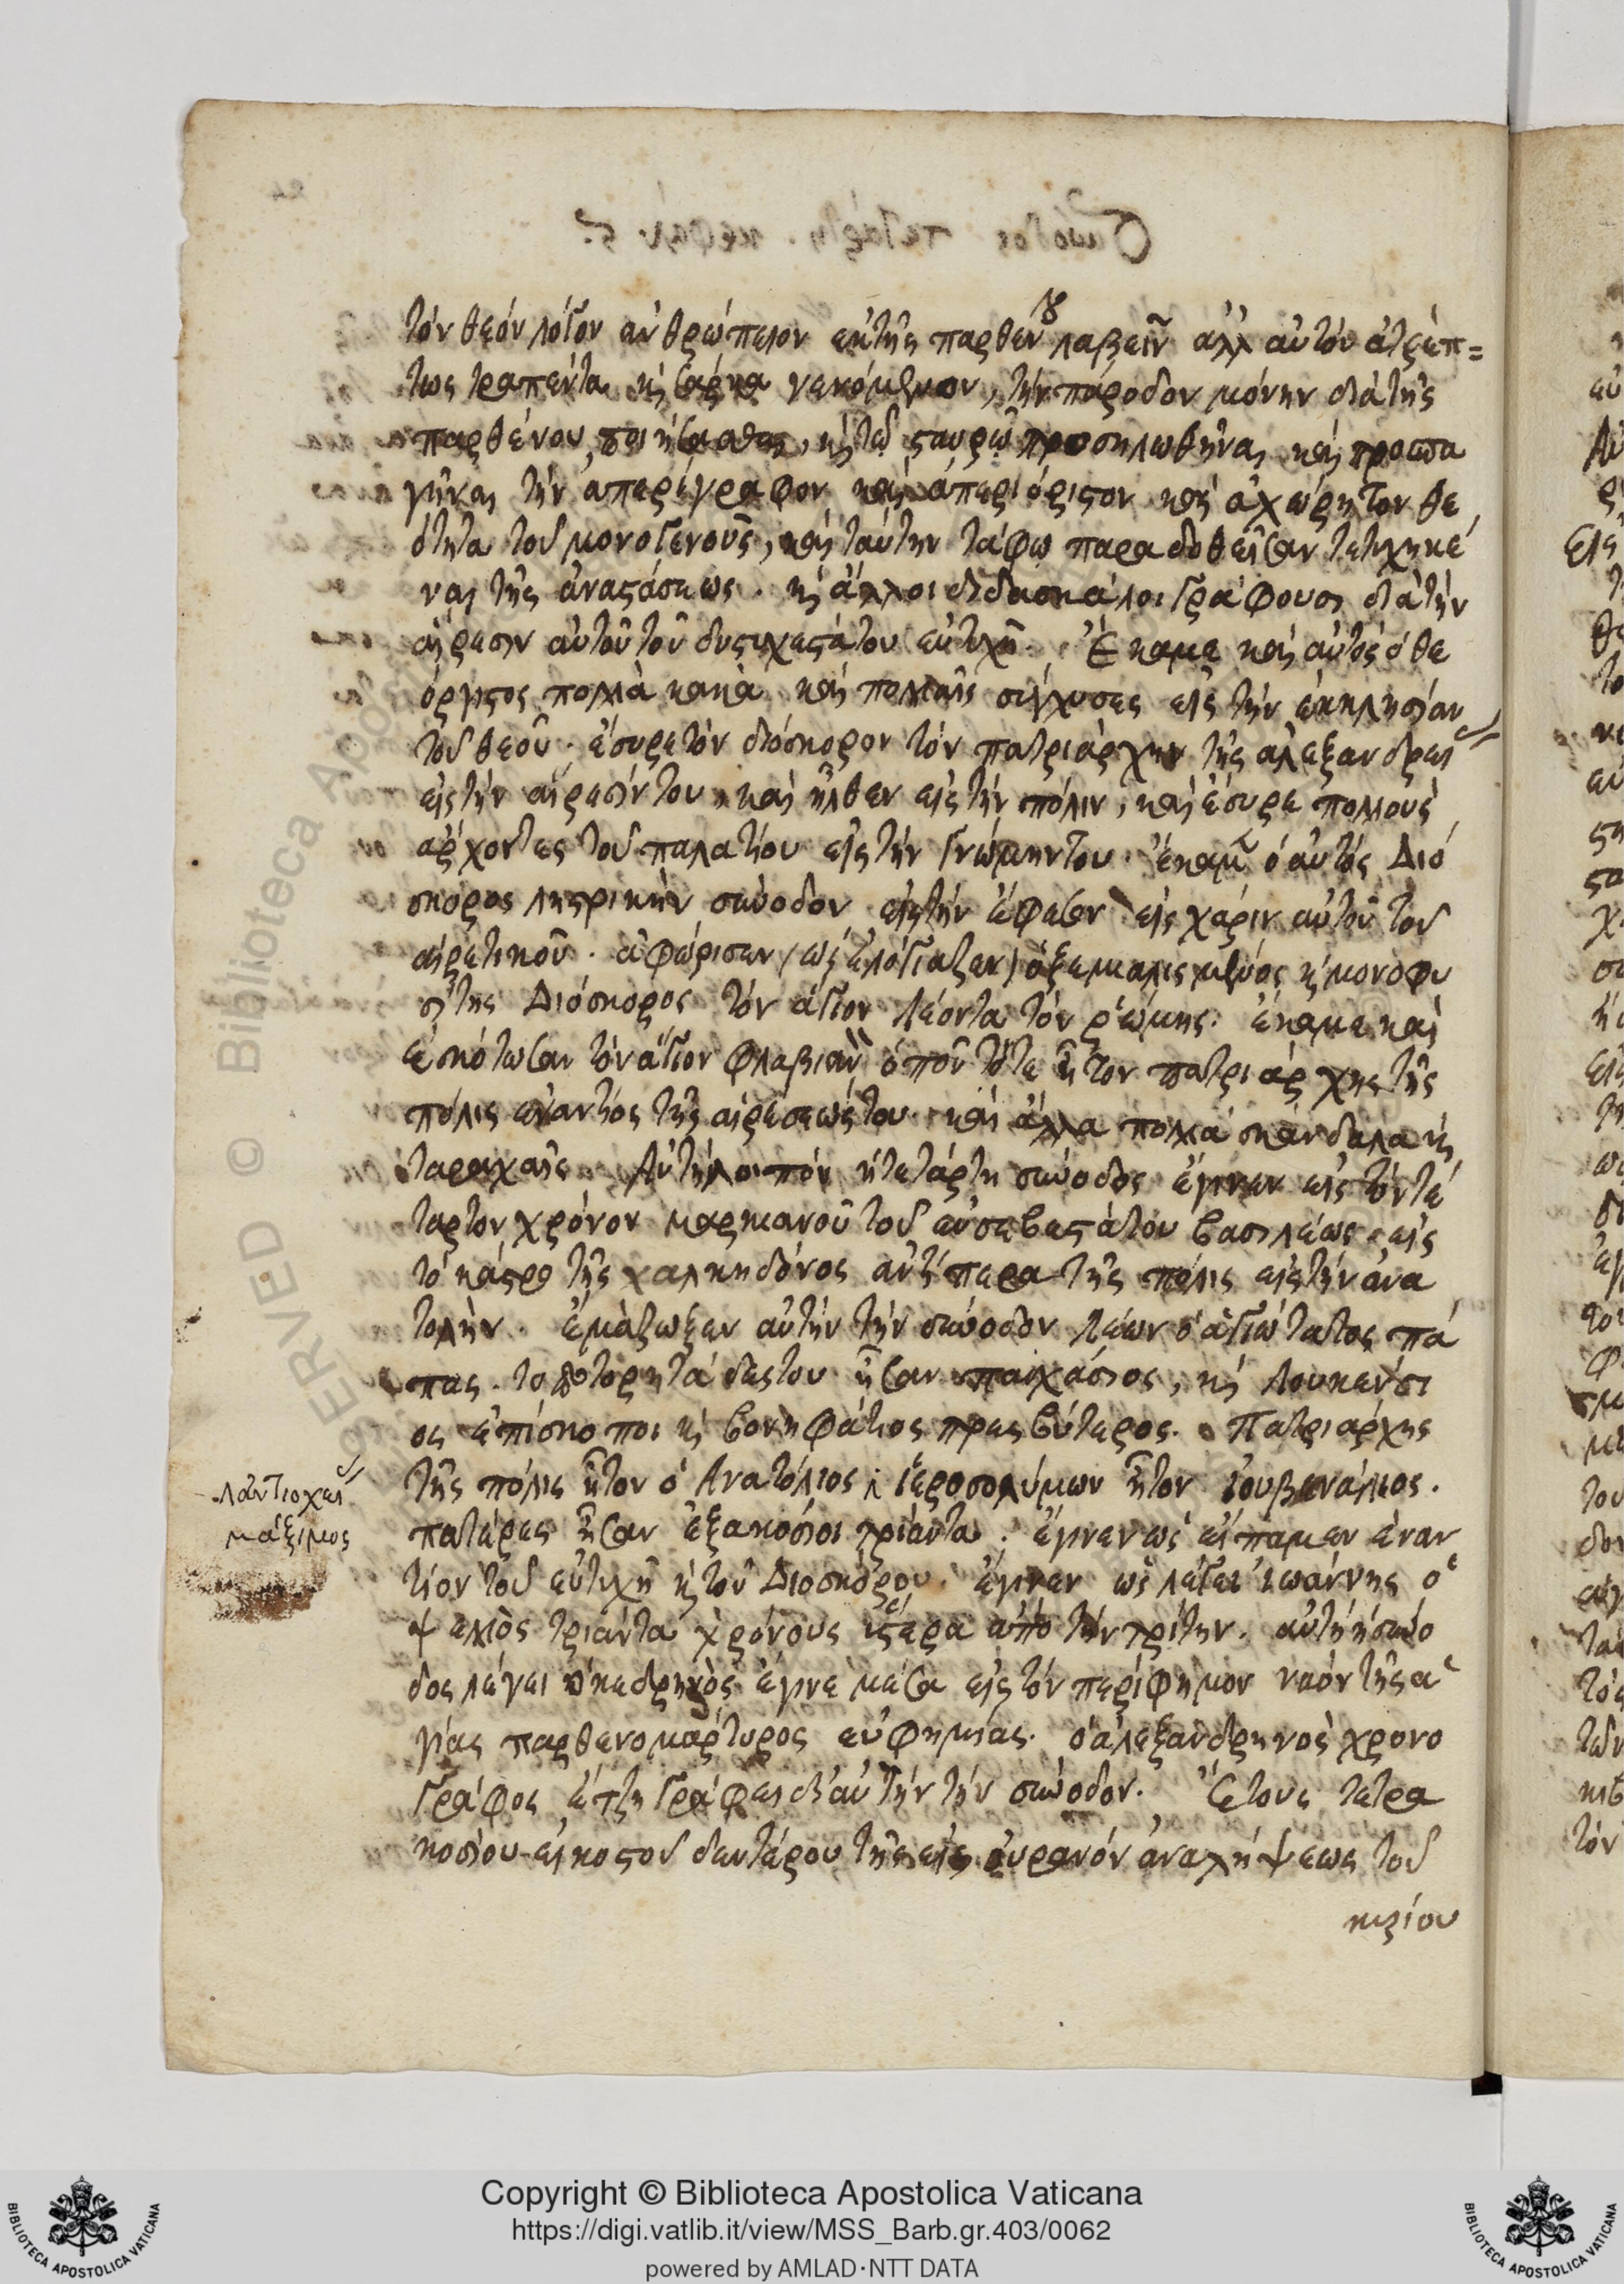 τόν θεόν λόγον ανθρώπειον εκτῆς παρθένου λαβεῖν αλλ αυτόν ατρέπ=
τως τραπέντα κ̀ σάρκα γενόμενον, τὴν πάροδον μόνην διὰ τῆς
παρθένου ποιήσασθαι, κ̀ τῶ σταυρῶ προσηλωθῆναι καὶ προσπα
γῆναι τὴν ἀπερίγραφον καὶ ἀπεριόριστον καὶ ἀχώρητον θε
ότητα τοῦ μονογενοῦς, καὶ ταύτην τάφω παραδοθεῖσαν τετυχηκέ
ναι τῆς ἀναστάσεως. κ̀ ἄλλοι διδασκάλοι γράφουσι διὰ τὴν
αἵρεσιν αὐτοῦ τοῦ δυστυχεστάτου εὐτυχῆ. Ἔκαμε καὶ αὐτὸς ὁ θε
όργιστος πολλὰ κακὰ καὶ πολλαῖς σύγχυσες εἰς τὴν ἐκκλησίαν
τοῦ θεοῦ. ἔσυρε τὸν διόσκορον τὸν πατριάρχην τῆς αλεξανδρεί
εἰς τὴν αἵρεσίν του, καὶ ἦλθεν εἰς τὴν πόλιν, καὶ ἔσυρε πολλοὺς
αρχοντες τοῦ παλατίου εἰς τὴν γνώμην του. ἔκαμε ὁ αὐτὸς Διό
σκορος ληστρικὴν σύνοδον εἰς τὴν ἔφεσον εἰς χάριν αὐτοῦ τοῦ
αἱρετικοῦ. ἀφώρισαν (ὡς ἐλόγιαζεν) ὁ ξεμαλισμένος κ̀ μονοφυ
σίτης Διόσκορος τὸν ἅγιον Λέοντα τὸν ῥώμης. ἔκαμε καὶ
ἐσκότωσαν τὸν ἅγιον Φλαβιανὸν ὁποῦ τότε ἦτον πατριάρχης τῆς
πόλις ἐναντίος τῆς αἱρέσεώς του. καὶ ἄλλα πολλὰ σκάνδαλα κ̀
ταραχαῖς. Αὐτὴ λοιπὸν ἡ τετάρτη σύνοδος ἔγινεν εἰς τὸν τέ
ταρτον χρόνον μαρκιανοῦ τοῦ εὐσεβεστάτου βασιλέως εἰς
τὸ κάστρο τῆς χαλκηδόνος αντίπερα τῆς πόλις εἰς τὴν ἀνα
τολήν. ἐμάζωξεν αὐτὴν τὴν σύνοδον Λέων ὁ ἁγιώτατος πά
πας. τοποτορητάδες του ἦσαν πασχάσιος, κ̀ Λουκένσι
ος ἐπίσκοποι κ̀ βονηφάτιος πρεσβύτερος. Πατριάρχης
τῆς πόλις ἦτον ὁ Ανατόλιος, ἱεροσολύμων ἦτον ἰουβενάλιος.
Λἀντιοχεί
μάξιμος
πατέρες ἦσαν ἑξακόσιοι τριάντα. ἔγινεν ὡς εἴπαμεν ἐναν
τίον τοῦ εὐτυχῆ κ̀ τοῦ Διοσκόρου. ἔγινεν ὡς λέγει ἰωάννης ὁ
ψελλὸς τριάντα χρόνους ὕστερα ἀπὸ τὴν τρίτην. αὐτὴ ἡ σύνο
δος λέγει ὁ κεδρηνὸς ἔγινε μέσα εἰς τὸν περίφημον ναὸν τῆς ἁ
γίας παρθενομάρτυρος εὐφημίας. ὁ ἀλεξανδρηνὸς χρονο
γράφος ἔτζη γράφει δι αὐτὴν τὴν σύνοδον. Ἔτους τετρα
κοσίου εἰκοστοῦ δευτέρου τῆς εἰς οὐρανόν ἀναλήψεως τοῦ
κυρίου
Copyright © Biblioteca Apostolica Vaticana
https://digi.vatlib.it/view/MSS_Barb.gr.403/0062
powered by AMLAD·NTT DATA